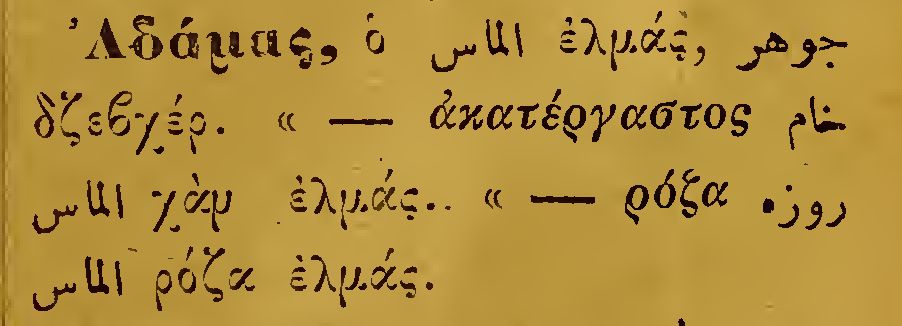 Ἀδάμας, ὁ الماس ἐλμάς, جوهر
δζεβχέρ. « — ἀκατέργαστος خام
الماس χὰμ ἐλμάς.. « — ρόζα روزه
الماس ρόζα ἐλμάς.